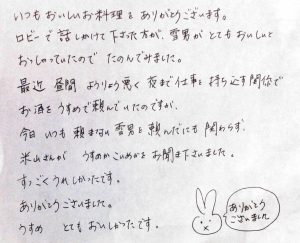 いつもおいしいお料理をありがとうございます。
ロビーで話しかけて下さった方が、雪男がとてもおいしいと
おっしゃっていたので たのんでみました。
最近 昼間 ようりょう悪く 夜まで仕事を持ち込す関係で
お酒をうすめで頼んでいたのですが、
今日 いつも頼まない雪男を頼んだにも関わらず、
米山さんが うすめかこいめかをお聞き下さいました。
すっごくうれしかったです。
ありがとうございました。
うすめ とてもおいしかったです。
ありがとう
ございました